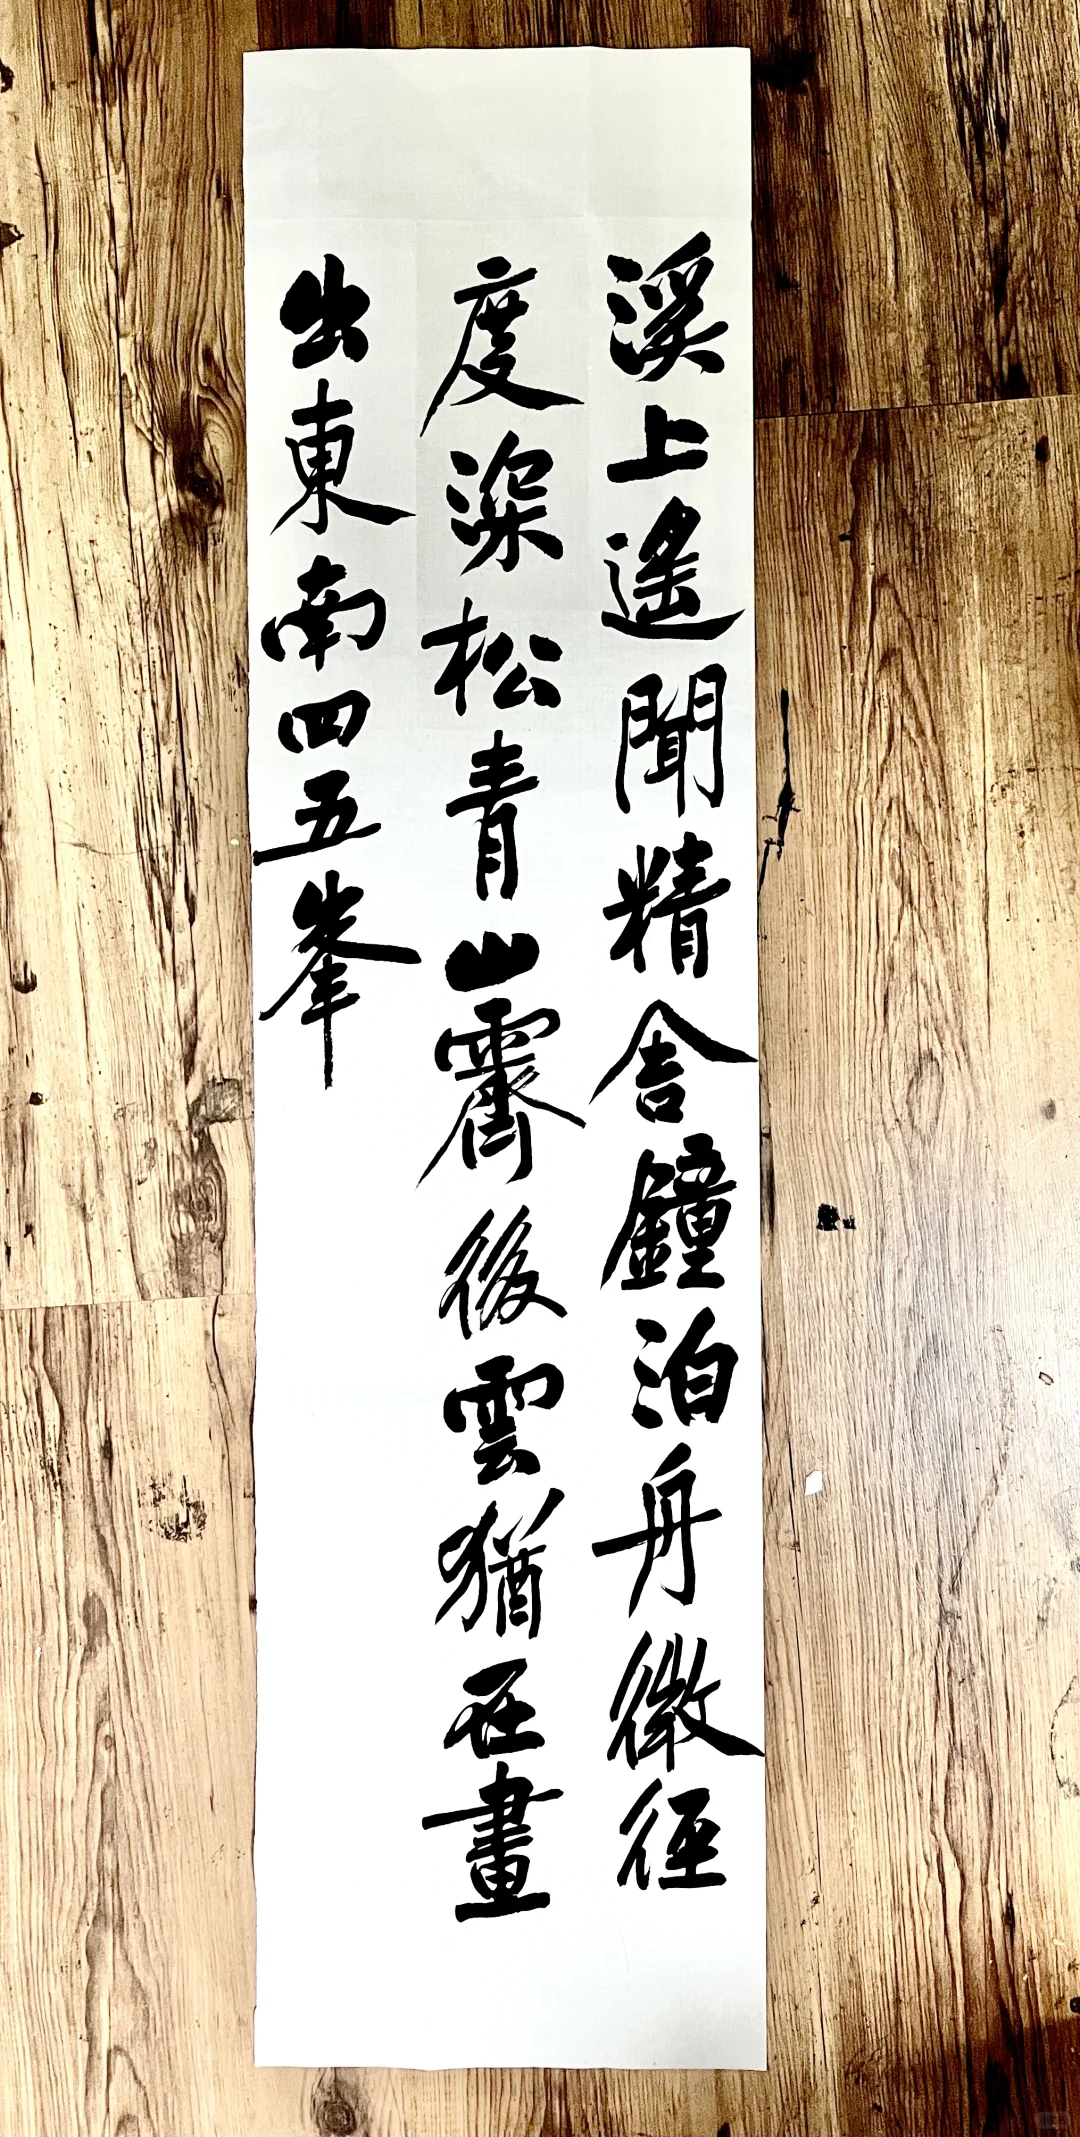 溪上遙聞精舍鐘泊舟微徑
度深松青山霽後雲猶在畫
出東南四五峯